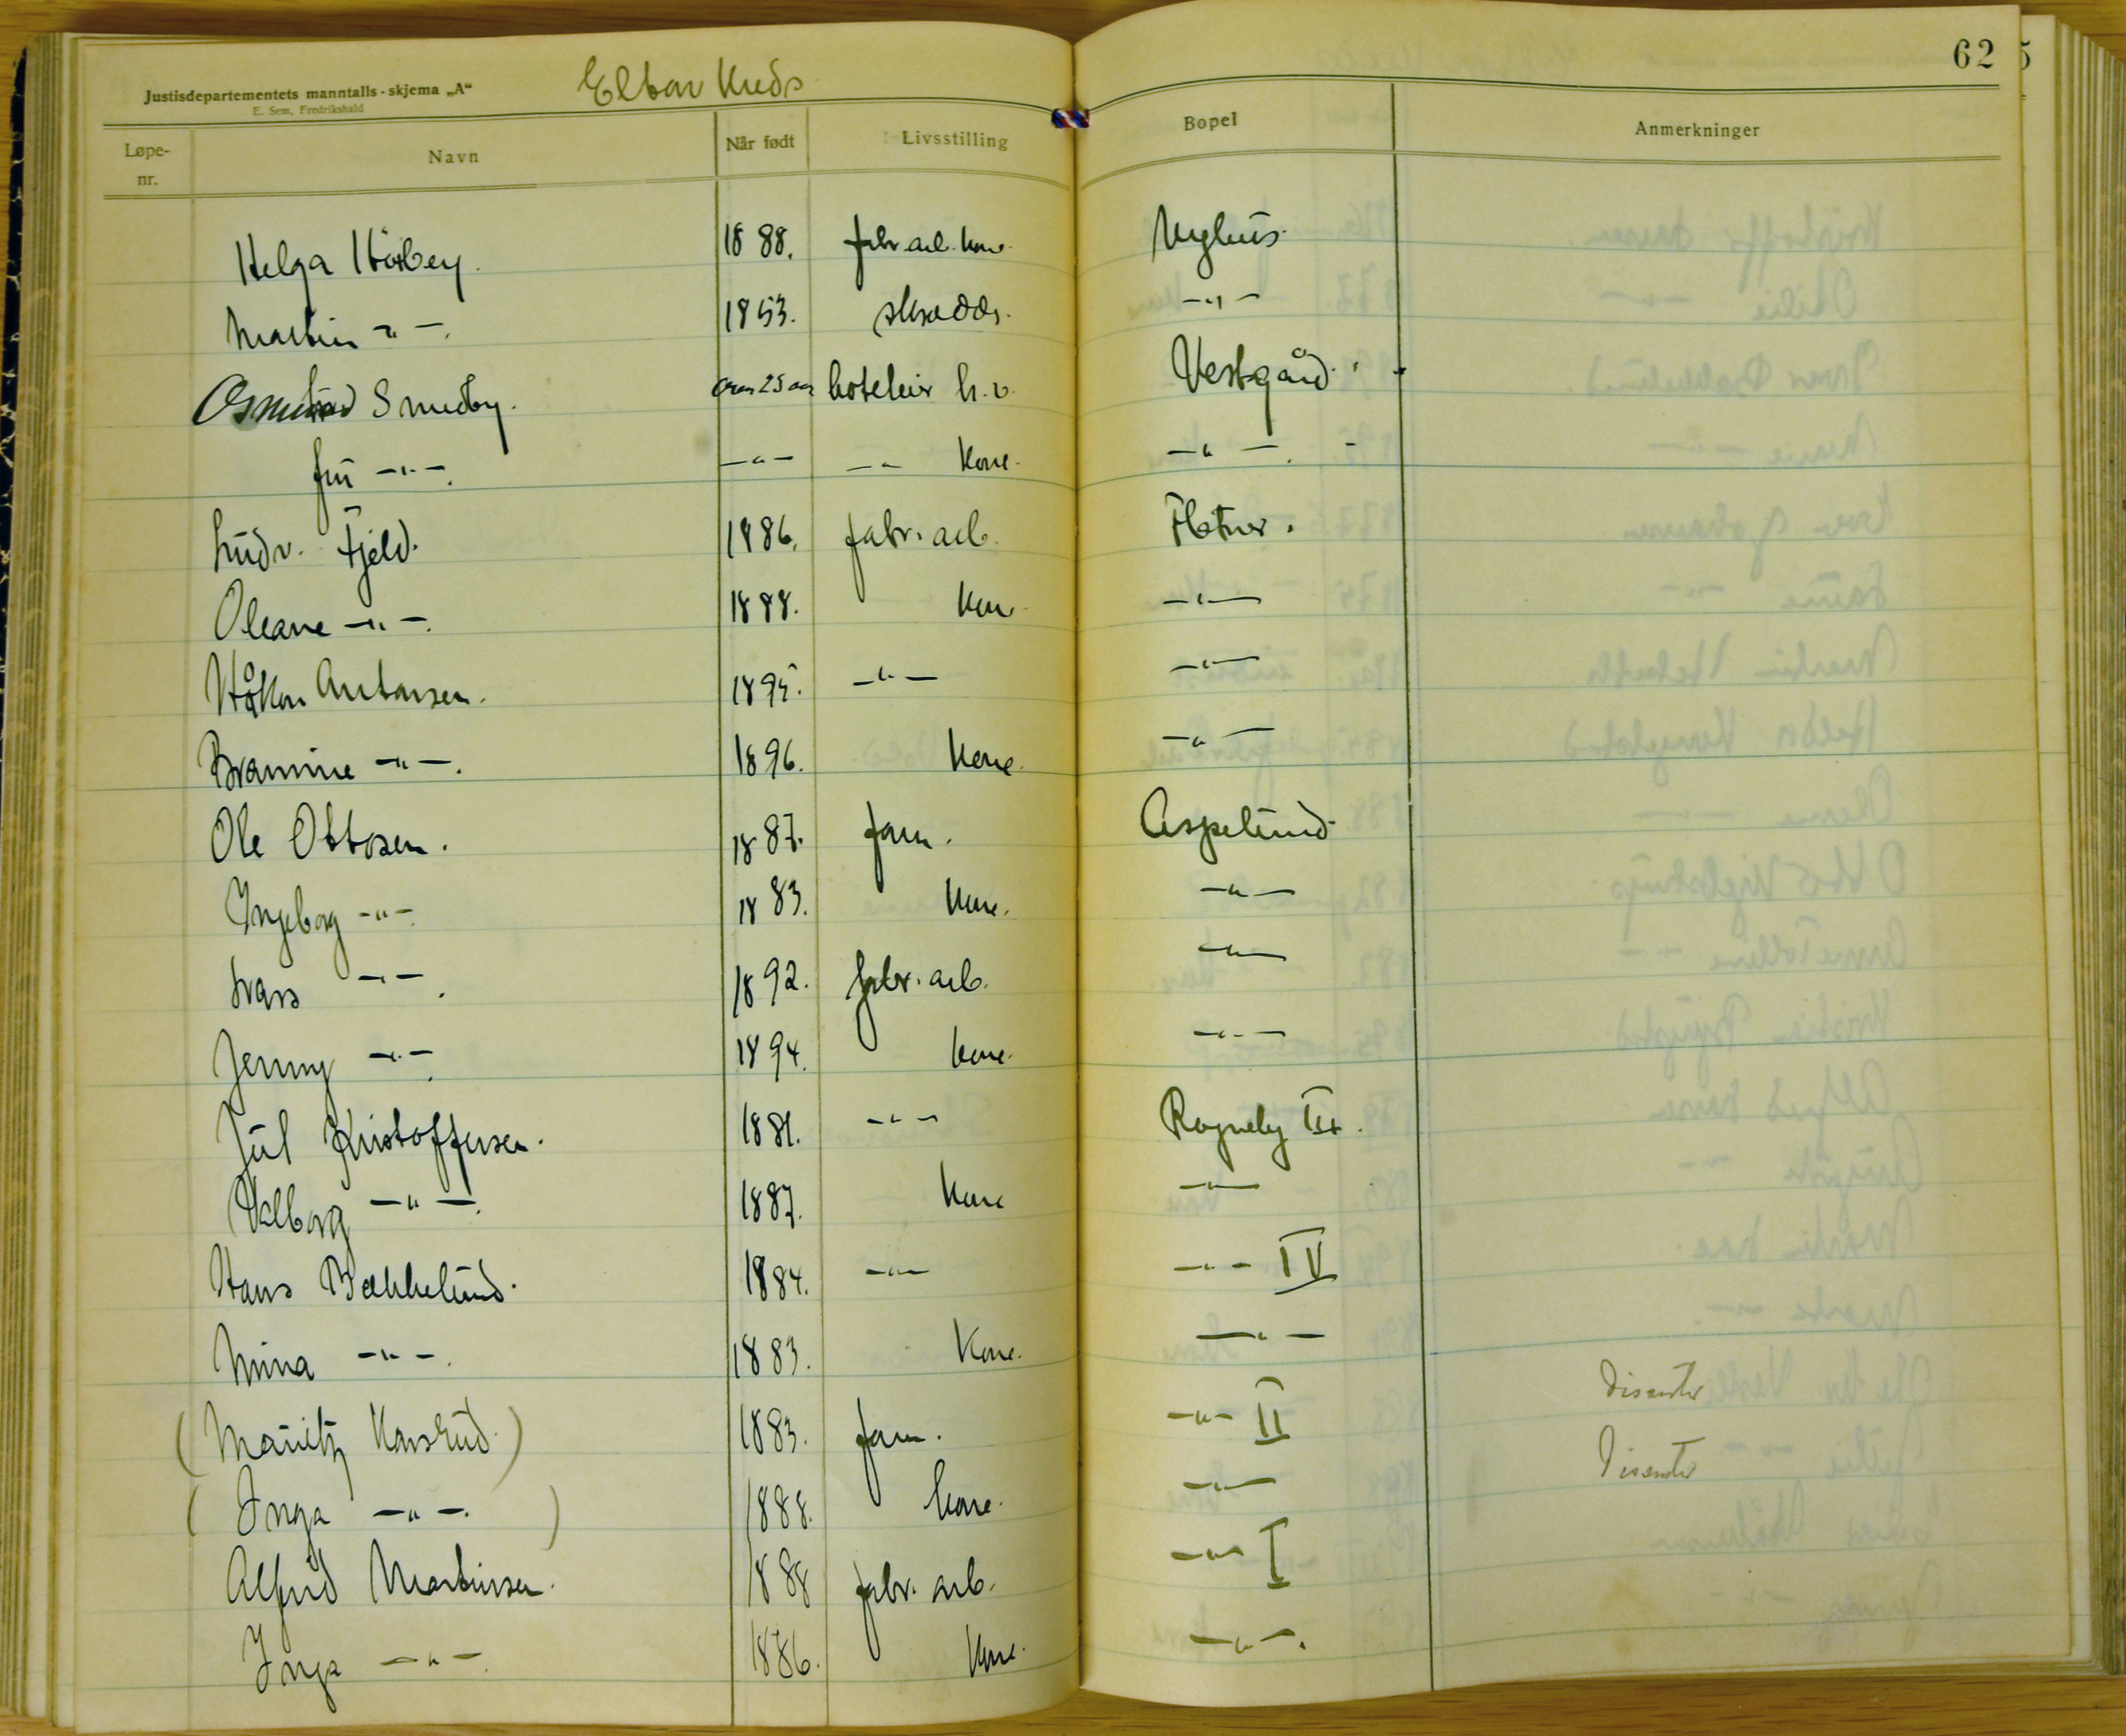 62
Justisdepartementets manntalls-skjema „A“ Elton Kreds
E. Sem, Fredrikshald
Løpe-nr. Navn Når født Livsstilling Bopel Anmerkninger
Helga 1888. fabr. arb. kone
Martin -"-. 1853. skredder. -"-
Osmund Smedby. over 25 aar hoteleier h.v. Vestgård.
fru -"-. -"- -"- kone. -"-.
Ludv. Fjeld. 1886. fabr. arb. Flatner.
Oleane -"-. 1888. kone -"-
Håkon Antonsen. 1895. -"- -"-
Brannine -"-. 1896. kone. -"-
Ole Ottosen. 1887. farm. Aspelund.
Ingeborg -"- 1883. kone. -"-
Lars -"-. 1892. fabr. arb. -"-
Jenny -"-. 1894. kone. -"-
Jul Kristoffersen. 1881. -"- III.
Valborg -"-. 1887. kone -"-
Hans Bækkelund. 1884. -"- -"- IV
Mina -"-. 1883. kone. -"-
(Mauritz Karsrud.) 1883. farm. -"- II Disenter
(Inga -"-.) 1888. kone. -"- Disenter
Alfred Martinsen. 1888 fabr. arb. -"- I
Inga -"-. 1886. kone. -"-.